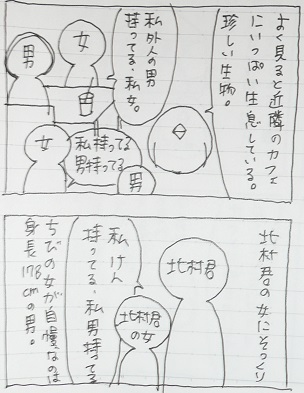 よく見ると近隣のカフェ
にいっぱい生息している。
珍しい生物。
私外人の男
持ってる、私女。
女
男
女
私持ってる
男持ってる
男
北村君の女にそっくり
北村君
私けん
持ってる、私男持ってる
北村君
の女
ちびの女が自慢なのは
身長178cmの男。